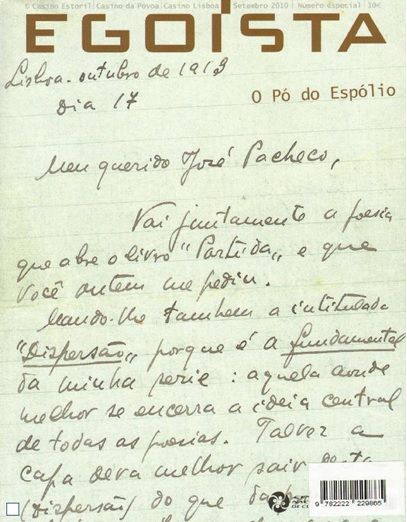 © Casino Estoril|Casino da Póvoa|Casino Lisboa Setembro 2010 | Número Especial | 10€
EGOÍSTA
Lisboa - outubro de 1913
Dia 17
O Pó do Espólio
Meu querido José Pacheco,
Vai juntamente a poesia
que abre o livro "Partida" e que
Você ontem me pediu.
Mando-lhe tambem a intitulada
"Dispersão" porque é a fundamental
da minha serie: aquela aonde
melhor se encerra a ideia central
de todas as poesias. Talvez a
capa deva melhor sair
(Dispersão) do que da
9 782222 229865